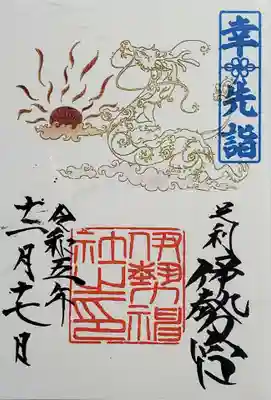 幸先詣
足利
伊勢神社
伊勢神
社之印
令和五年
十二月十七日